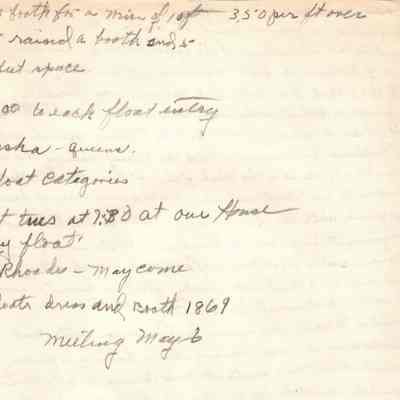 booth for a min of 10ft 3.50 per ft over
raised a booth and 5
space
00 to each float entry
ska - queens.
loat Categories
t tues at 7:30 at our House
y float
Rhoades - may come
dress and Booth 1869
Meeting May 6